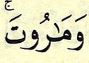 وَمَٰرُوتَۚ